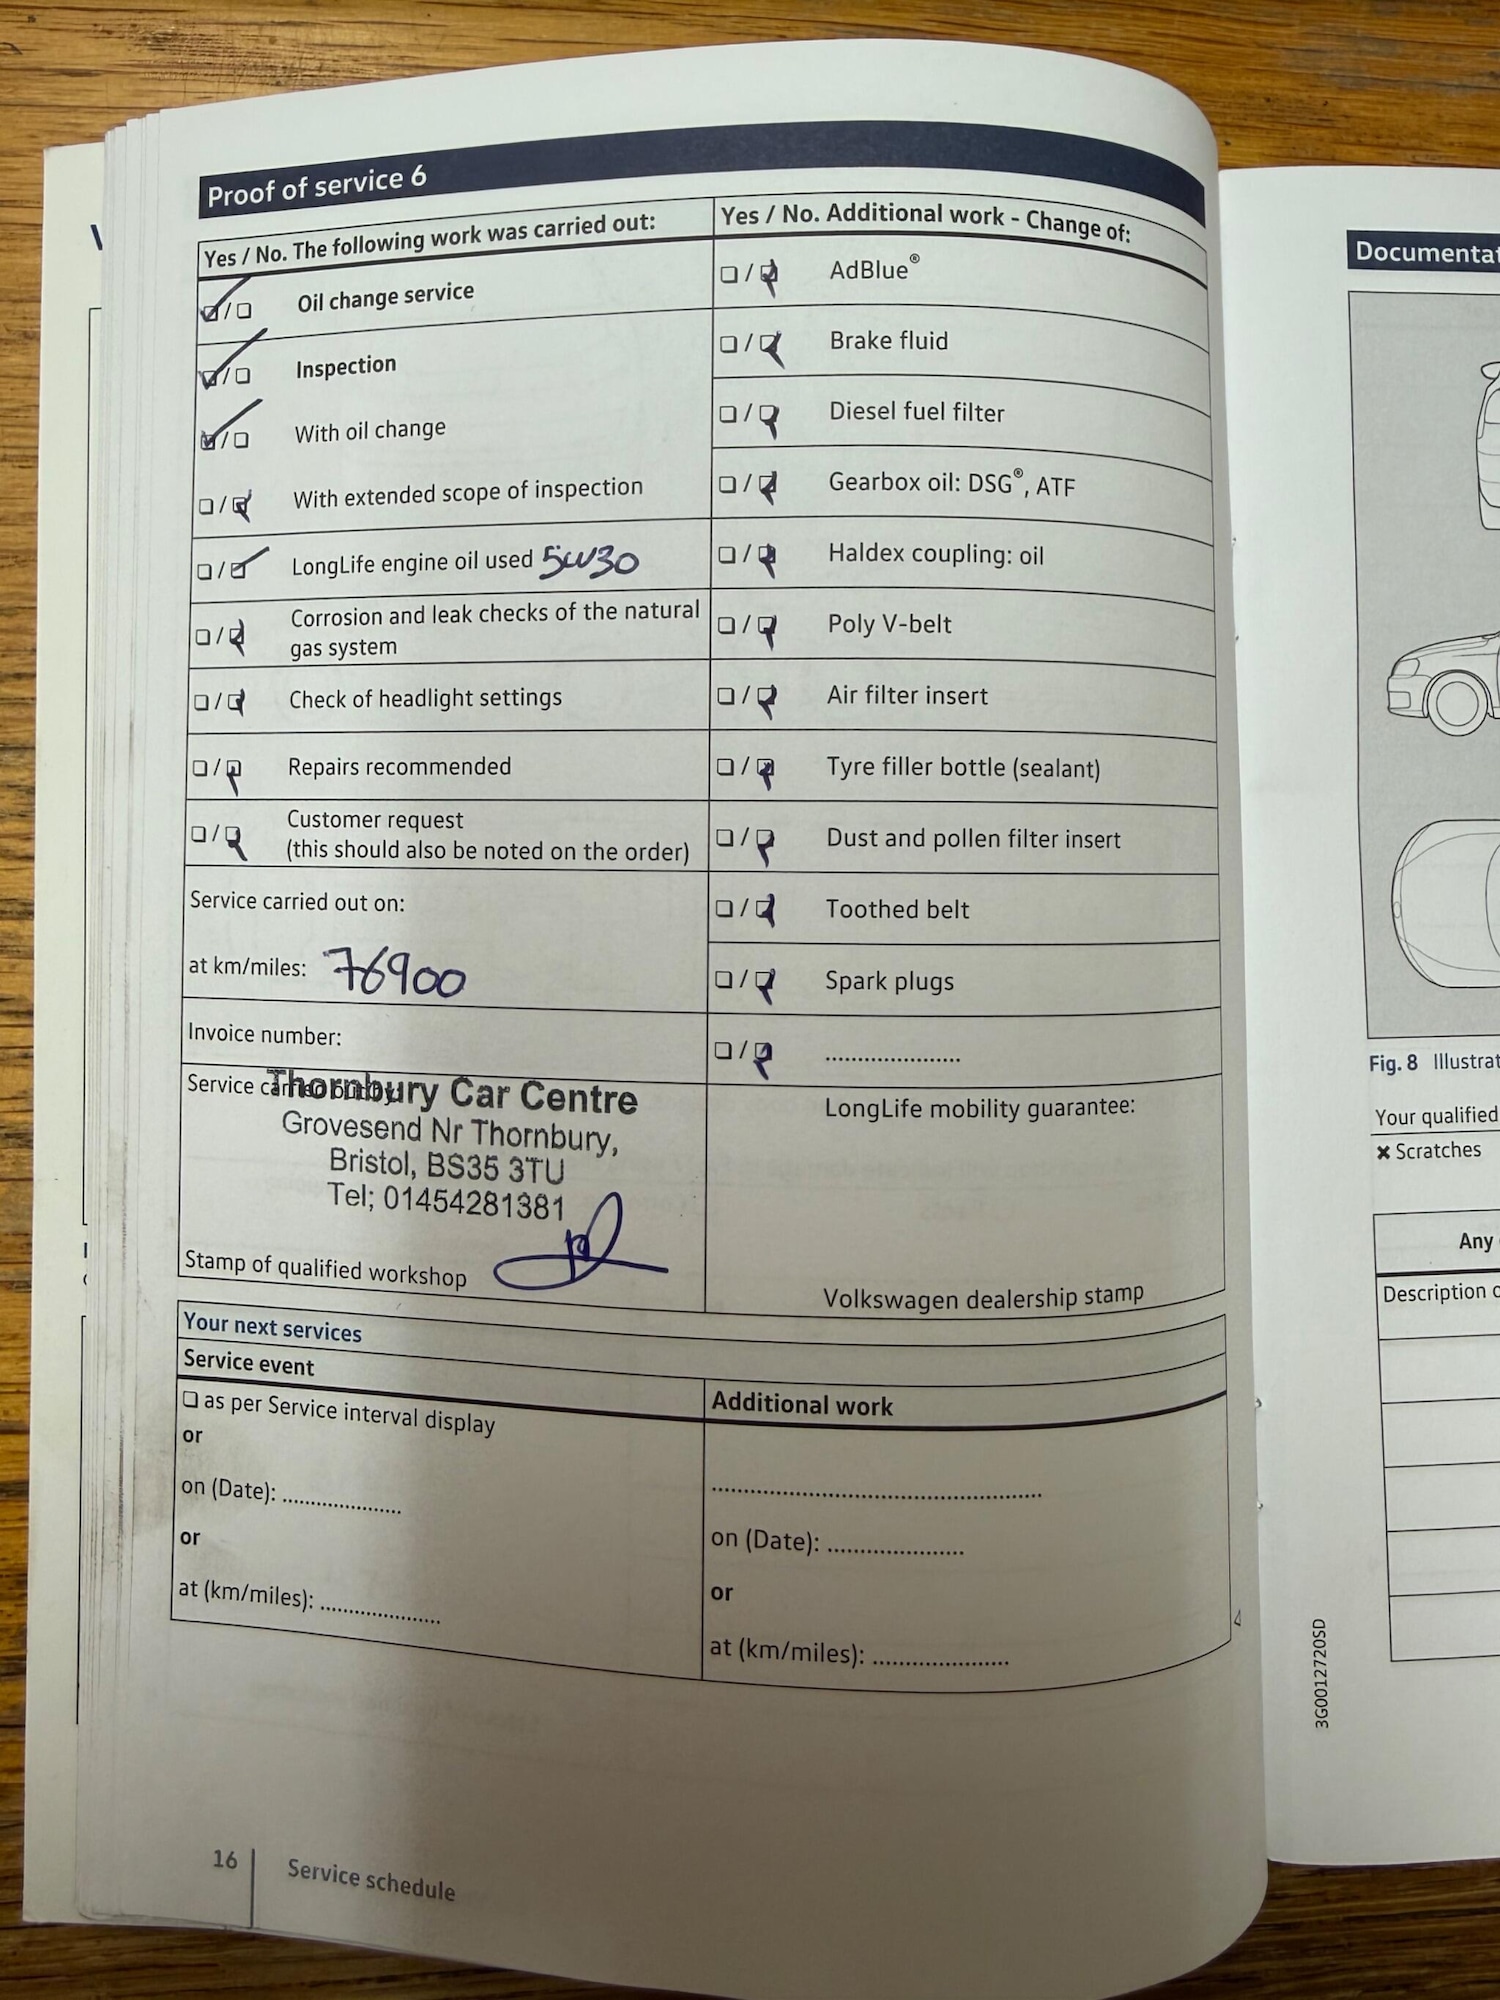 Proof of service 6
Yes / No. The following work was carried out:
❑ / ❑ Oil change service
❑ / ❑ Inspection
❑ / ❑ With oil change
❑ / ❑ With extended scope of inspection
❑ / ❑ LongLife engine oil used 5W30
❑ / ❑ Corrosion and leak checks of the natural
gas system
❑ / ❑ Check of headlight settings
❑ / ❑ Repairs recommended
❑ / ❑ Customer request
(this should also be noted on the order)
Service carried out on:
at km/miles: 76900
Invoice number:
Service carried out by:
Thornbury Car Centre
Grovesend Nr Thornbury,
Bristol, BS35 3TU
Tel; 01454281381
Stamp of qualified workshop
Yes / No. Additional work - Change of:
❑ / ❑ AdBlue®
❑ / ❑ Brake fluid
❑ / ❑ Diesel fuel filter
❑ / ❑ Gearbox oil: DSG®, ATF
❑ / ❑ Haldex coupling: oil
❑ / ❑ Poly V-belt
❑ / ❑ Air filter insert
❑ / ❑ Tyre filler bottle (sealant)
❑ / ❑ Dust and pollen filter insert
❑ / ❑ Toothed belt
❑ / ❑ Spark plugs
❑ / ❑ .....................
LongLife mobility guarantee:
Volkswagen dealership stamp
Your next services
Service event
❑ as per Service interval display
or
on (Date): ....................
or
at (km/miles): ....................
Additional work
....................................................
on (Date): ......................
or
at (km/miles): ......................
16 Service schedule
Documentat
Fig. 8 Illustrat
Your qualified
✖ Scratches
Any
Description o
3G0012720SD